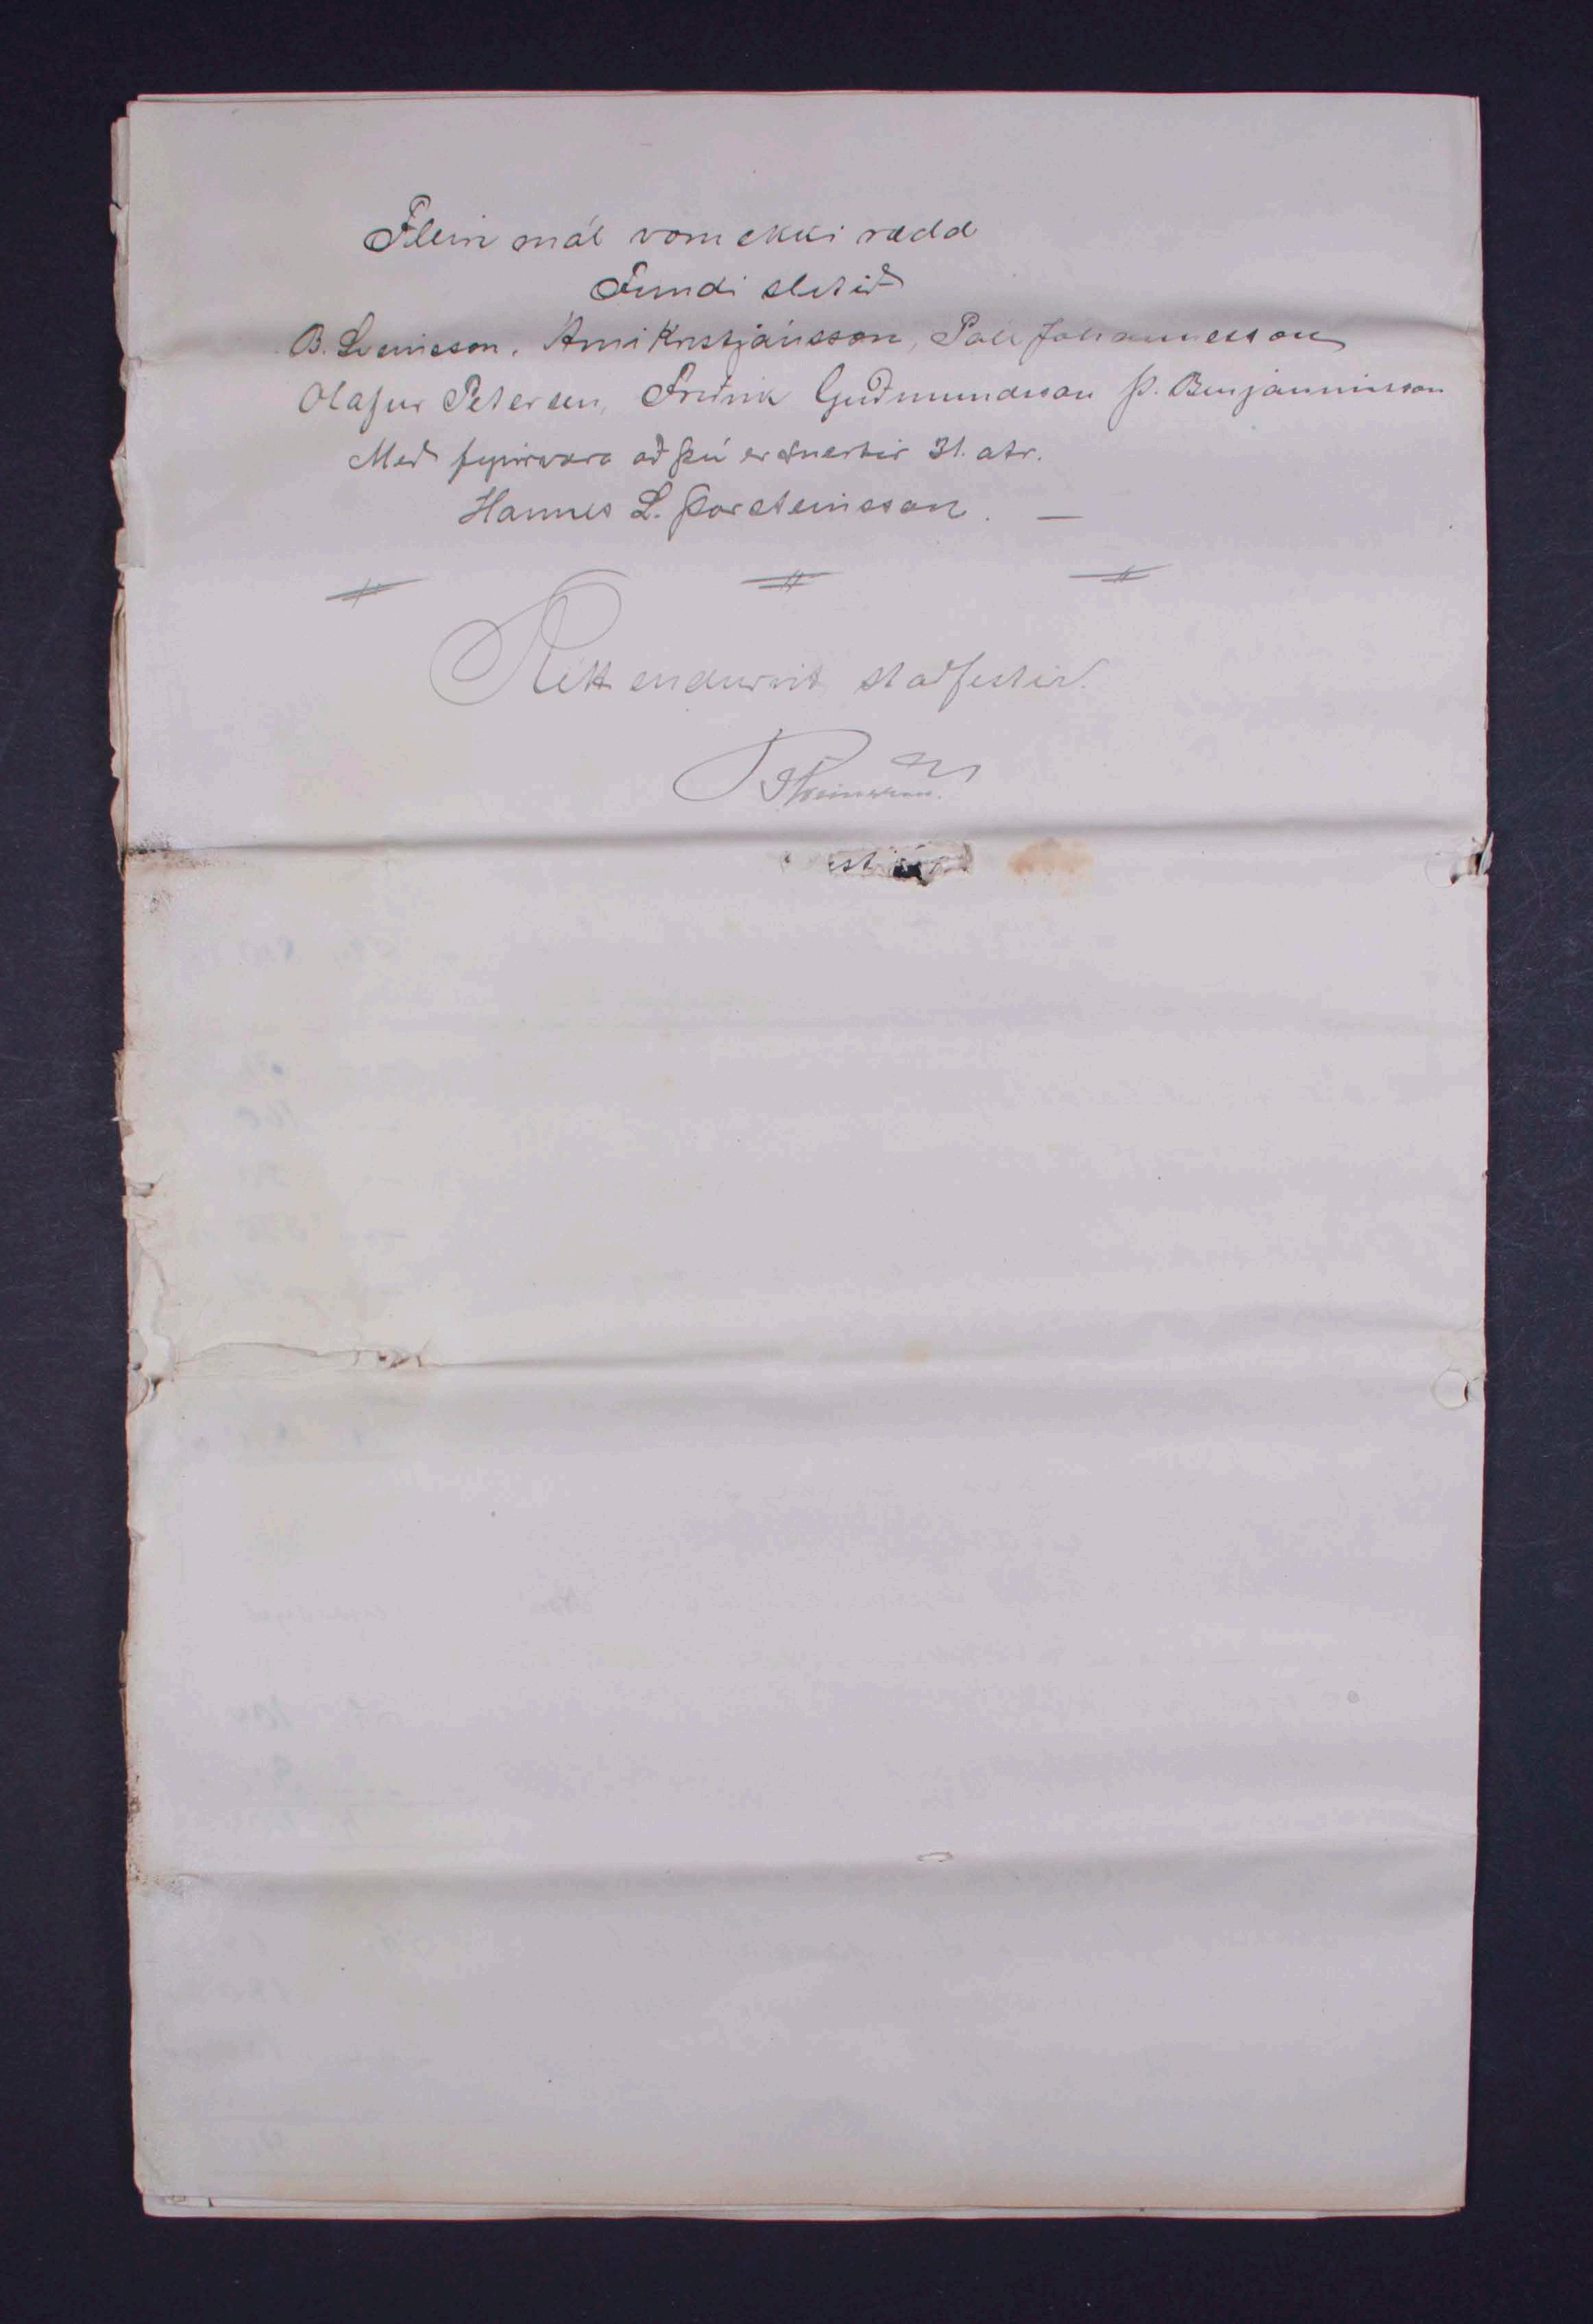 Fleiri mál voru ekki rædd
Fundi slitið
B. Sveinsson, Árni Kristjánsson, Páll Jóhannesson
Olafur Petersen, Friðrik Guðmundsson Þ. Benjamínsson
Með fyrirvara að því er snertir 31. atr.
Hannes L. Þorsteinsson. —
Rétt endurrit staðfestir